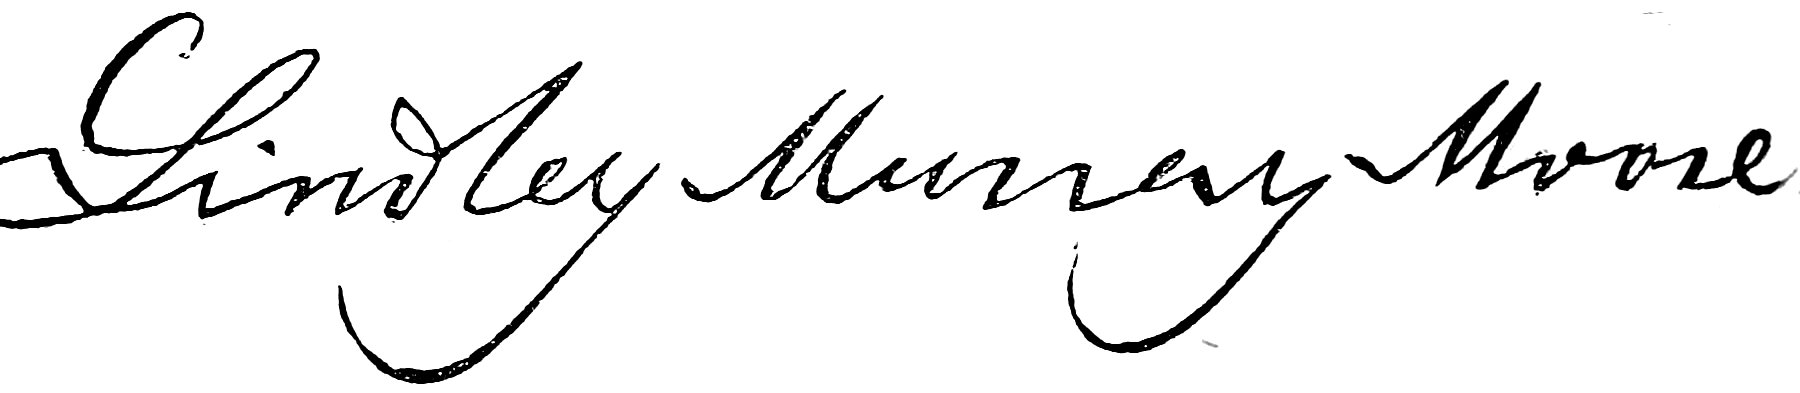 Lindley Murray Moore